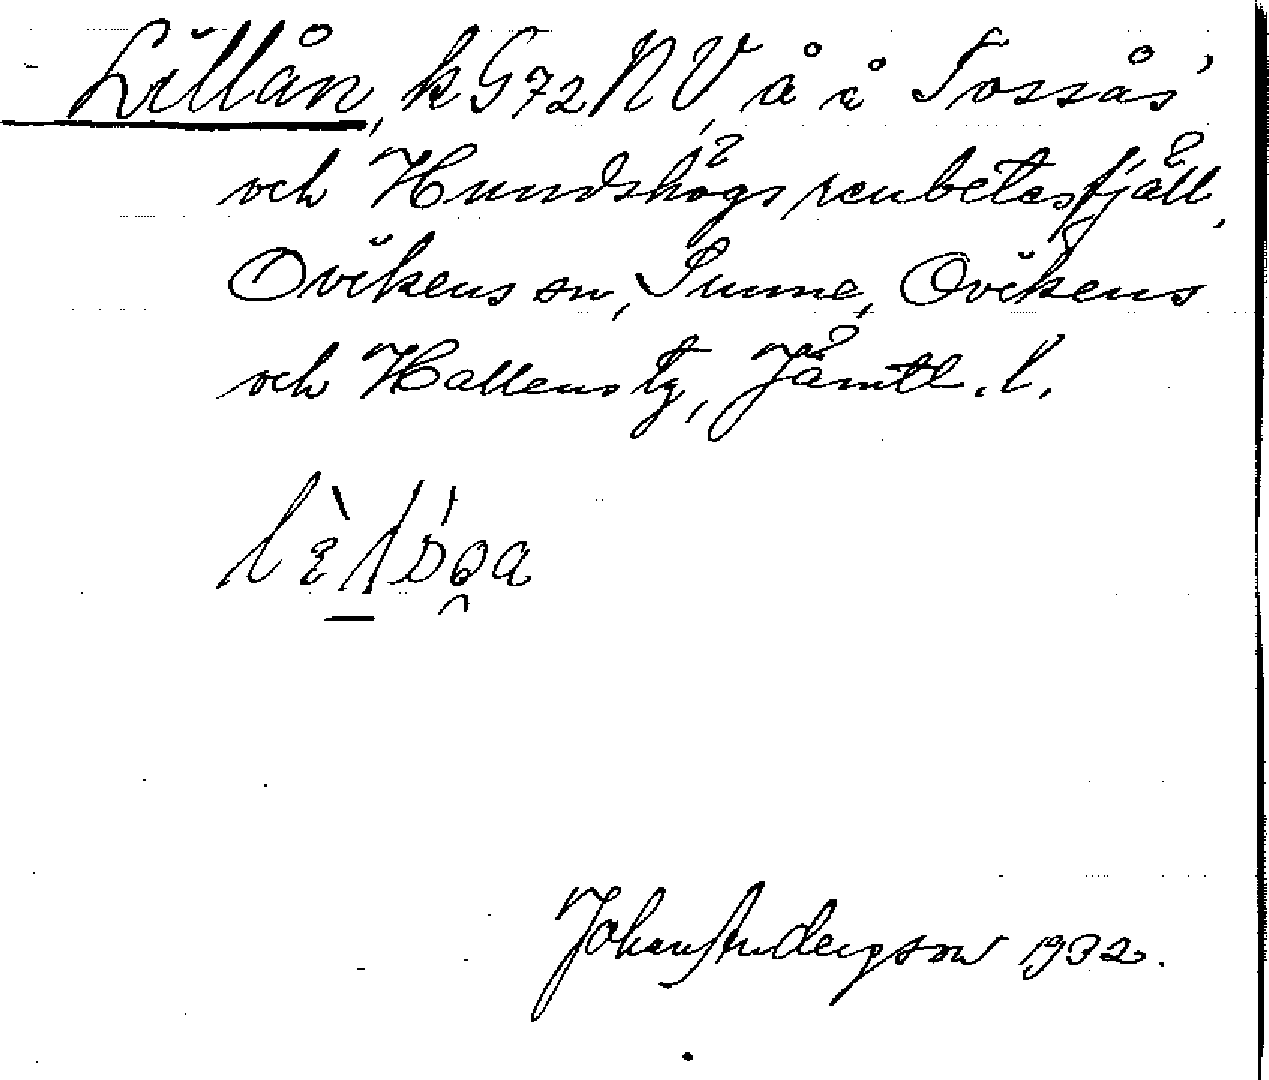 Lillån, k G72 NV, å i Tossås'
och Hundshögs renbetesfjäll,
Ovikens sn, Sunne, Ovikens
och Hallens tg, Jämtl. l.
Johan Anderson 1932.